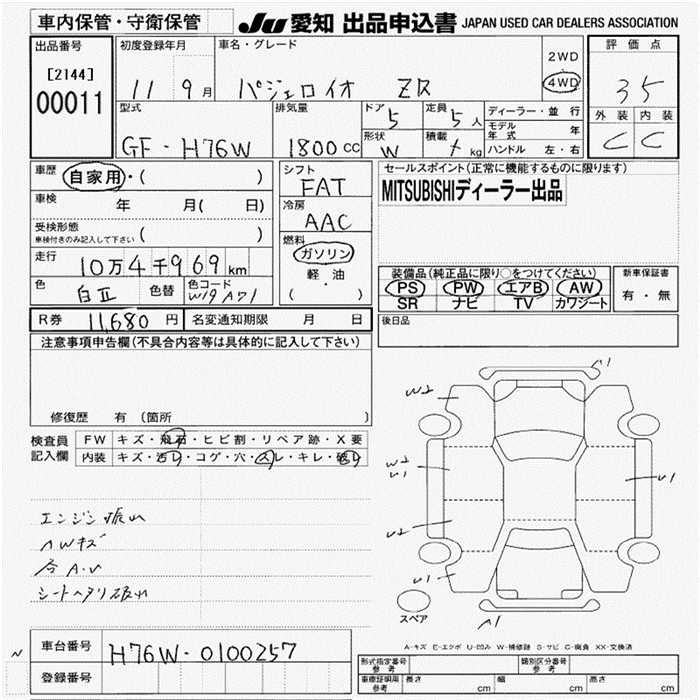 車内保管・守衛保管
JU 愛知 出品申込書 JAPAN USED CAR DEALERS ASSOCIATION
出品番号
[2144]
00011
初度登録年月
11 9月
車名・グレード
パジェロイオ ZR
2WD
4WD
評価点
3.5
外装 内装
C C
型式
GF-H76W
排気量
1800cc
ドア
5
定員
5人
形状
W
積載
kg
ディーラー・並行
モデル年式 年
ハンドル 左・右
車歴 自家用・( )
車検 年 月( 日)
受検形態
車検付きのみ記入して下さい ( )
走行 10万4千969km
色 白II 色替 色コード W19A71
シフト
FAT
冷房
AAC
燃料
ガソリン
軽・油
( )
セールスポイント(正常に機能するものに限ります)
MITSUBISHIディーラー出品
装備品(純正品に限り○をつけてください)
PS PW エアB AW
SR ナビ TV カワシート
新車保証書
有・無
R券 11,680円 名変通知期限 月 日
後日品
注意事項申告欄(不具合内容等は具体的に記入して下さい)
修復歴 有(箇所
検査員記入欄
FW キズ・飛石・ヒビ割・リペア跡・X要
内装 キズ・汚レ・コゲ・穴・スレ・キレ・破レ
エンジン振れ
AWキズ
各A.U
シートヘタリ破れ
A1
W2
W2
U1
U1
U2
U1
A1
スペア
A-キズ E-エクボ U-凹み W-補修跡 S-サビ C-腐食 XX-交換済
車台番号 H76W-0100257
登録番号
形式指定番号 参考 類別区分番号 参考
車庫証明用 参考 長さ cm 幅 cm 高さ cm